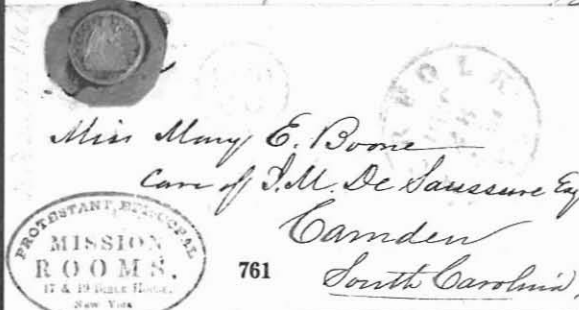 NOLK
Miss Mary E. Boone
Care of J. M. De Saussure Esq
Camden
South Carolina,
PROTESTANT EPISCOPAL
MISSION
ROOMS,
17 & 19 Bible House,
New York
761